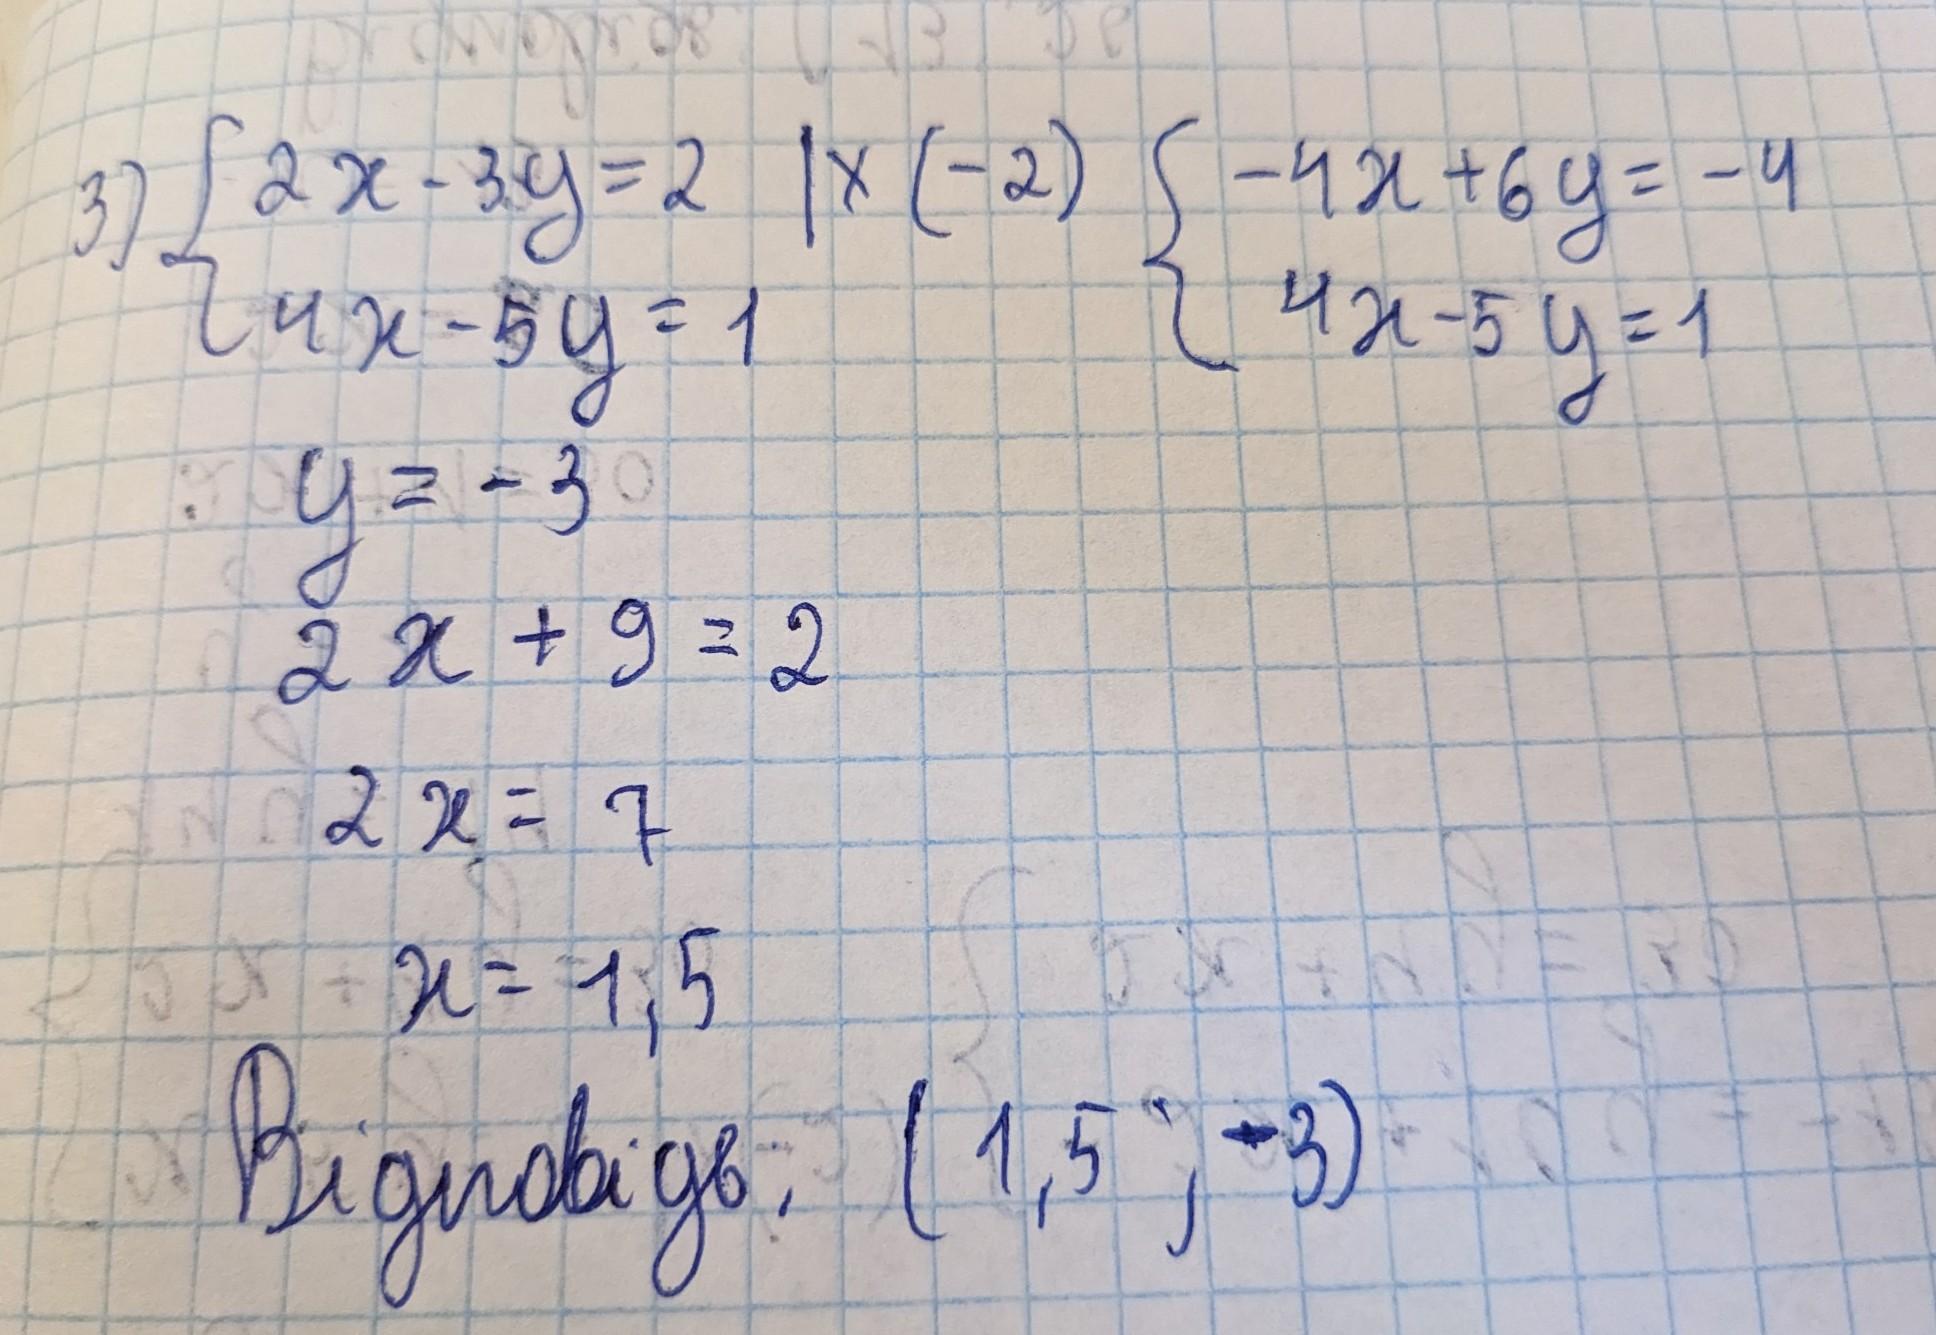 3) { 2x - 3y = 2 | × (-2) { -4x + 6y = -4
4x - 5y = 1 4x - 5y = 1
y = -3
2x + 9 = 2
2x = 7
x = 1,5
Відповідь: (1,5 ; -3)